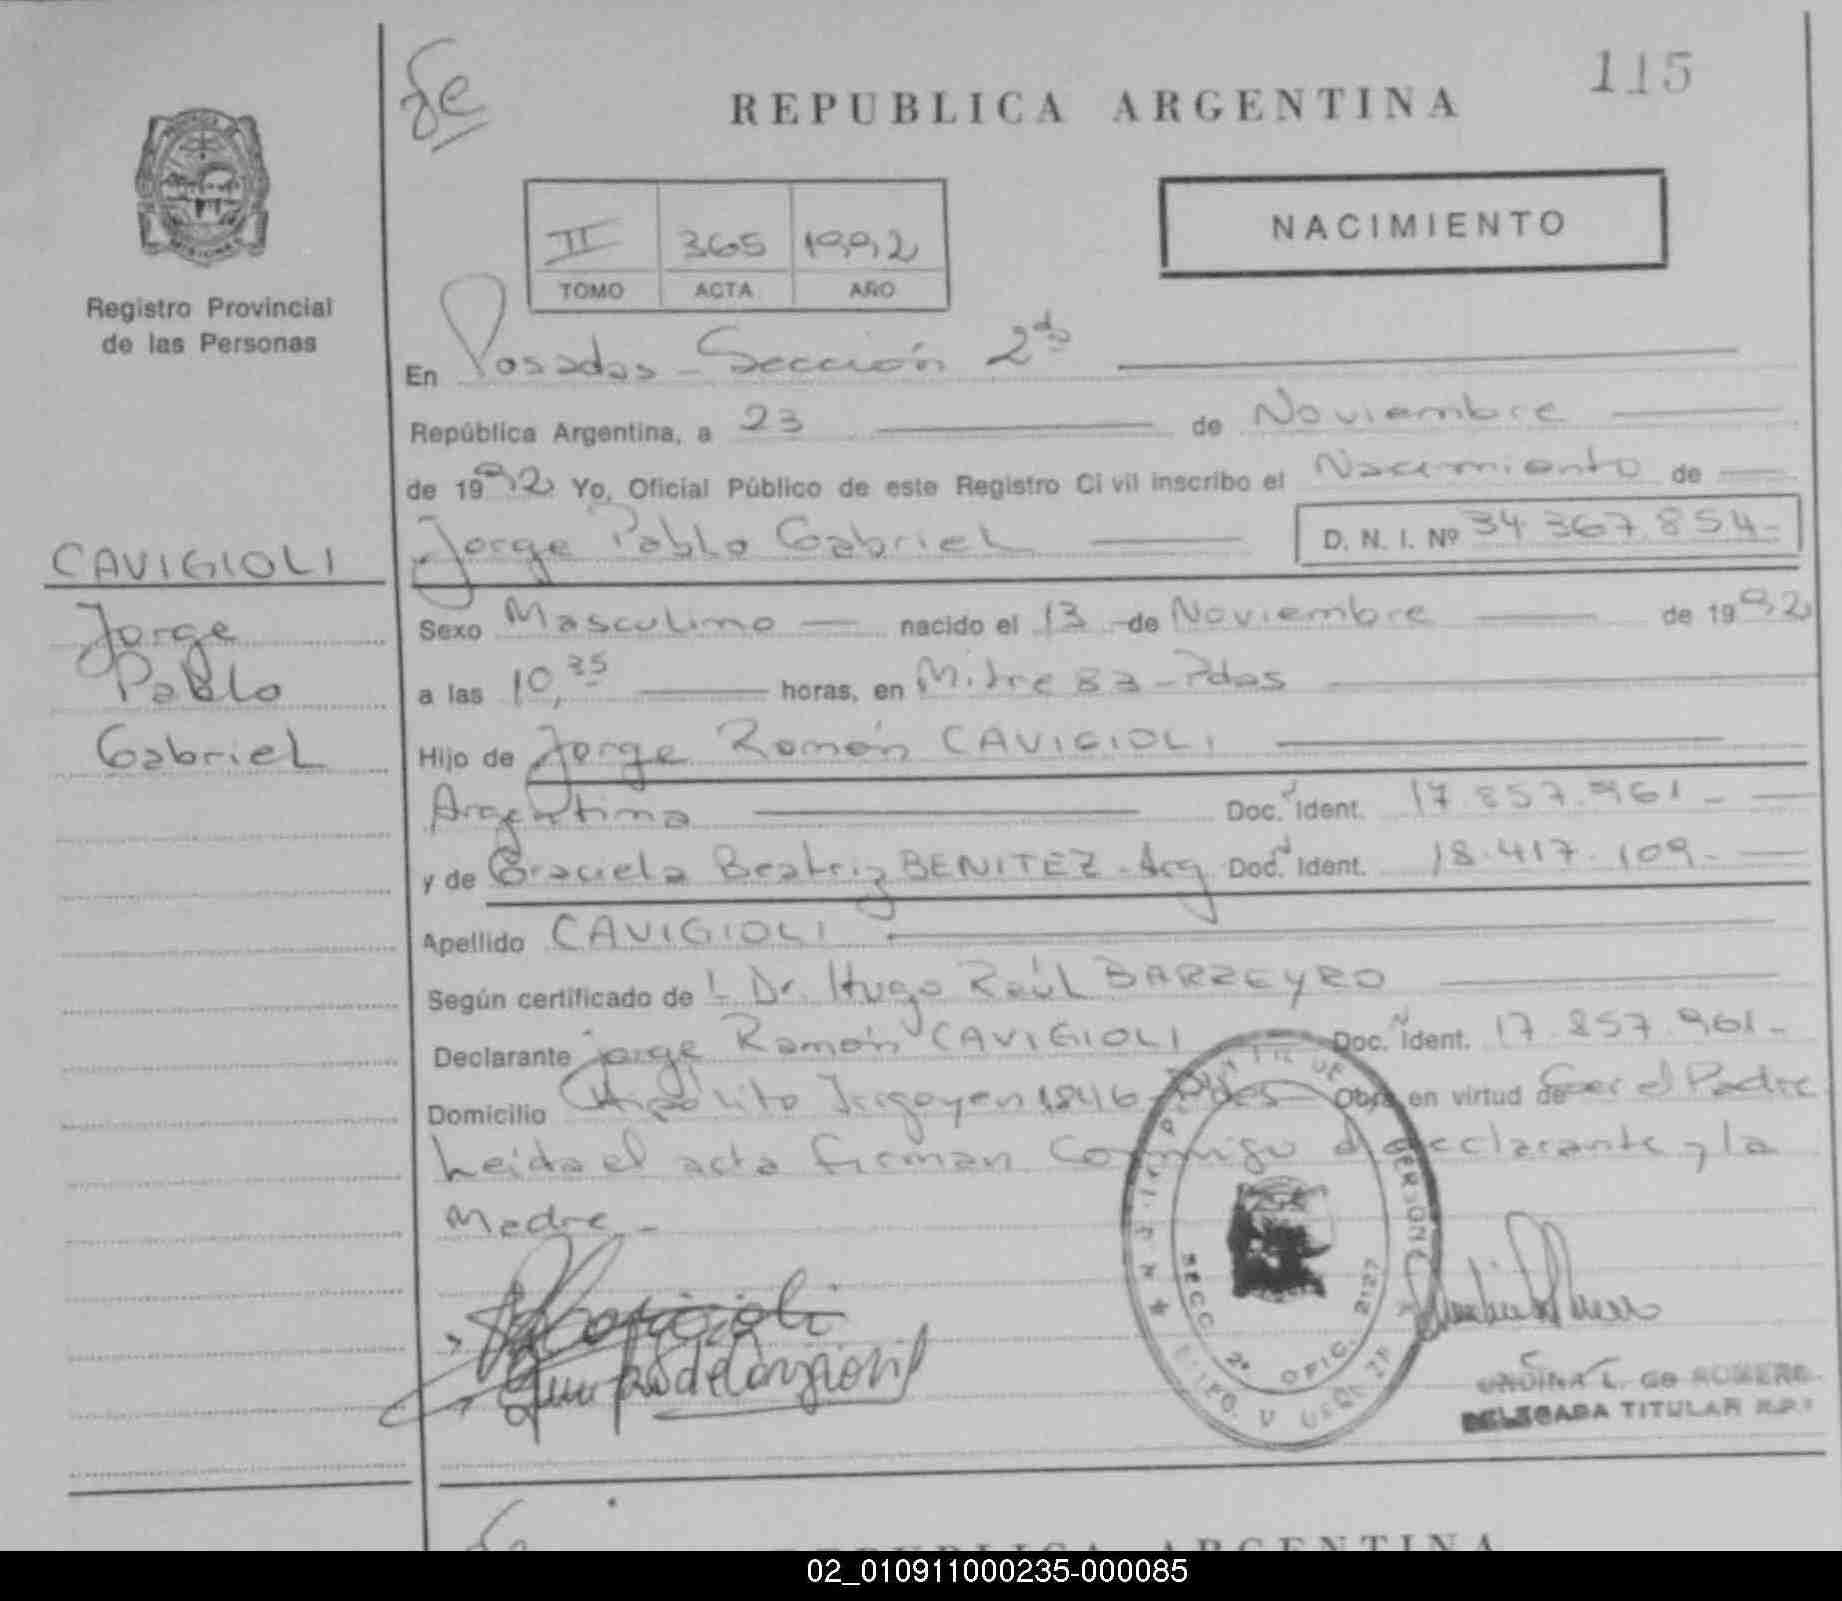 115
Fe
REPUBLICA ARGENTINA
NACIMIENTO
II 365 1992
TOMO ACTA AÑO
Registro Provincial
de las Personas
En Posadas - Sección 2da
República Argentina, a 23 de Noviembre
de 1992 Yo, Oficial Público de este Registro Civil inscribo el Nacimiento de
Jorge Pablo Gabriel D. N. I. Nº 34.367.854-
CAVIGIOLI
Jorge
Pablo
Gabriel
Sexo Masculino nacido el 13 de Noviembre de 1992
a las 10,35 horas, en Mitre 83 - Pdas
Hijo de Jorge Ramón CAVIGIOLI
Argentina Doc. Ident. 17.857.961-
y de Graciela Beatriz BENITEZ - Arg Doc. Ident. 18.417.109-
Apellido CAVIGIOLI
Según certificado de Dr. Hugo Raúl BARREYRO
Declarante Jorge Ramón CAVIGIOLI Doc. Ident. 17.857.961-
Domicilio Hipólito Irigoyen 1846 - Pdas - Obra en virtud de Ser el Padre
Leida el acta firman conmigo el declarante y la
Madre -
SECC. 2ª OFIC. 2127
L. de ROMERO
DELEGADA TITULAR R.P.
REPUBLICA ARGENTINA
02_010911000235-000085